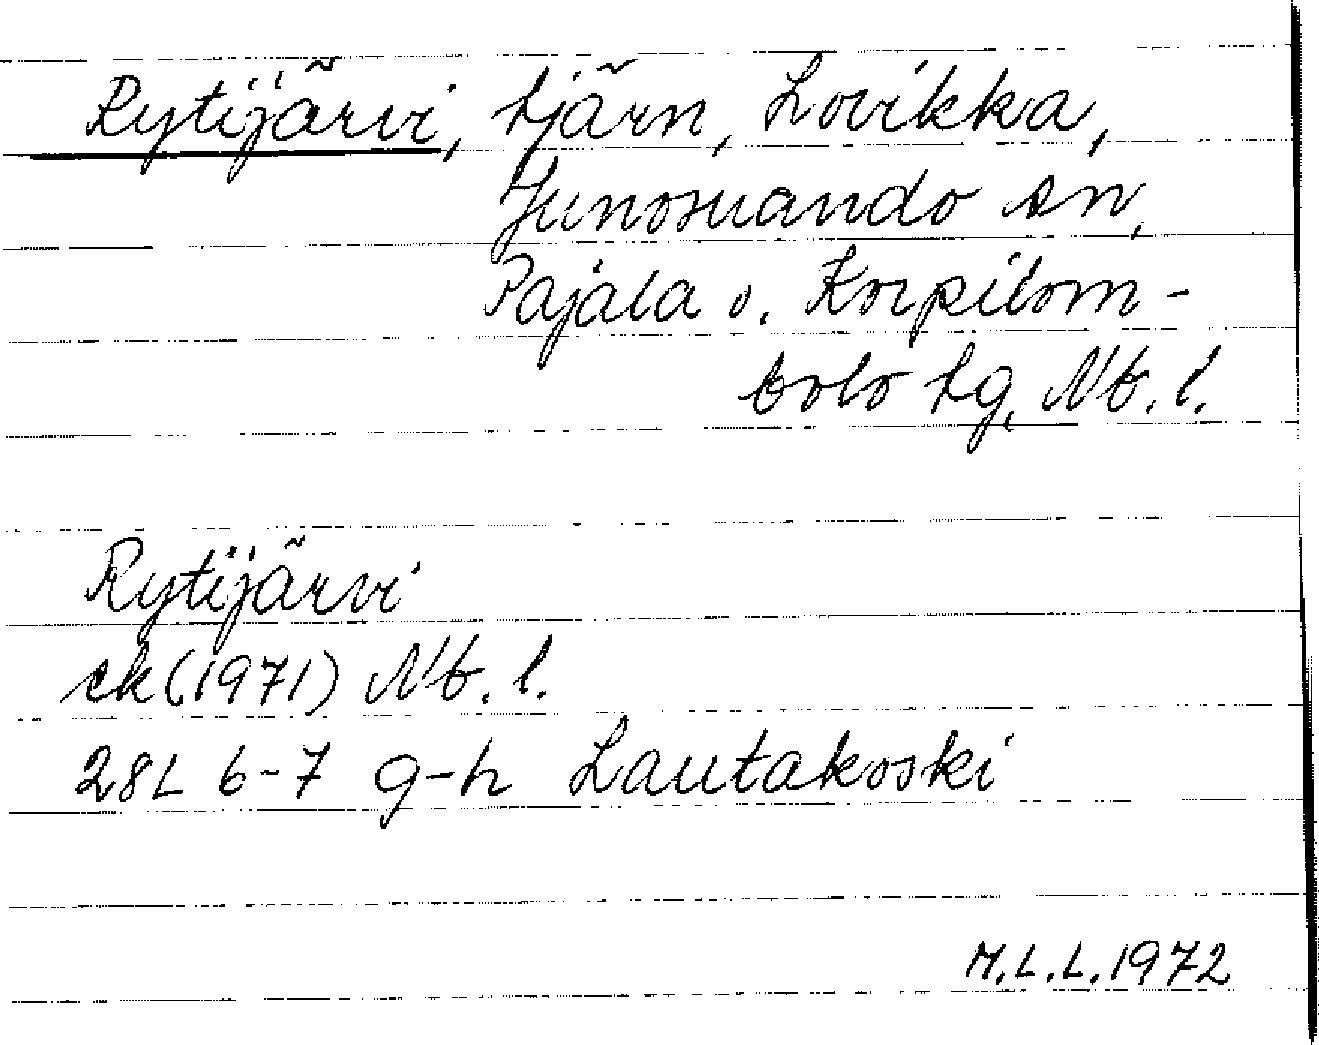 Rytijärvi, tjärn, Lovikka,
Junosuando sn,
Pajala o. Korpilom-
bolo tg, Nb. l.
Rytijärvi
ek (1971) Nb. l.
28L 6-7 g-h Lautakoski
M.L.L. 1972